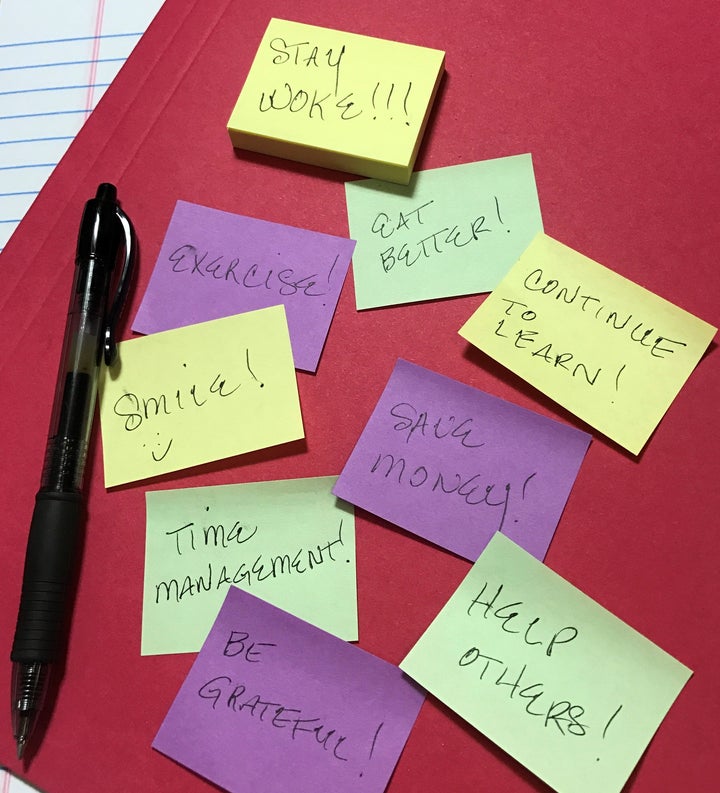 STAY
WOKE!!!
EAT
BETTER!
EXERCISE!
CONTINUE
TO
LEARN!
SMILE!
SAVE
MONEY!
TIME
MANAGEMENT!
HELP
OTHERS!
BE
GRATEFUL!